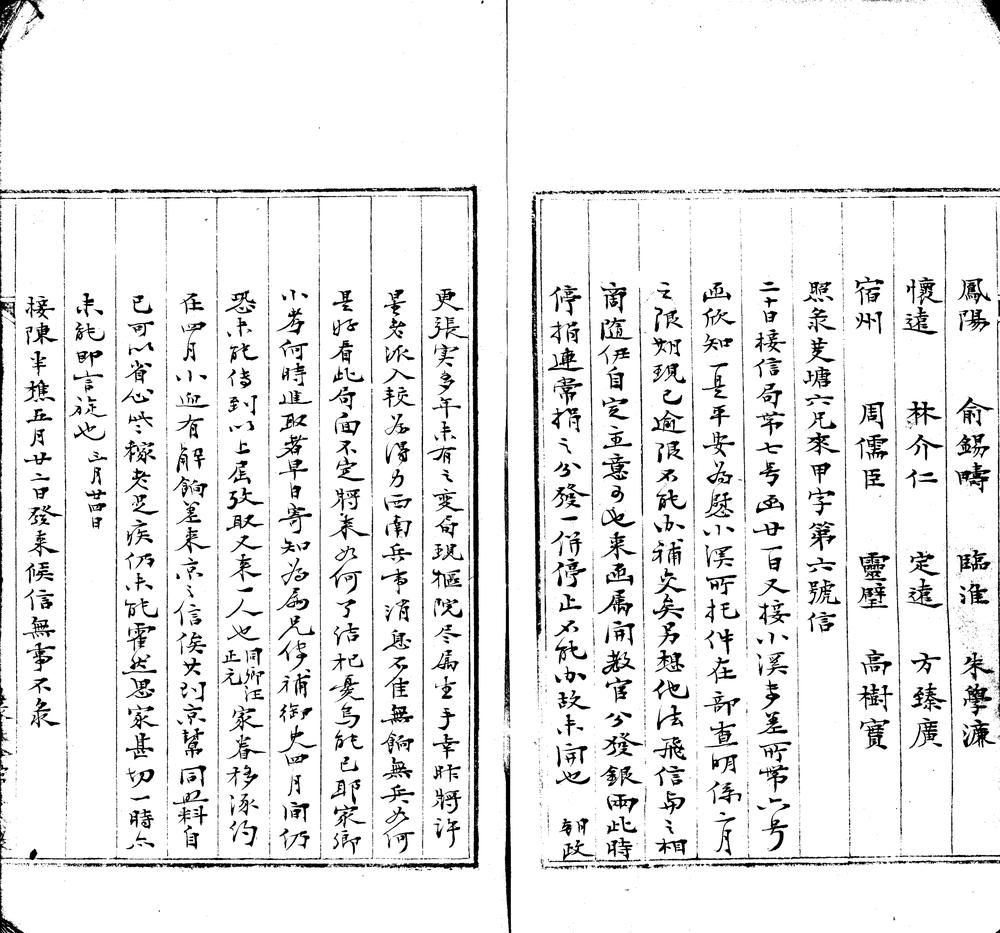 鳳陽 俞錫疇 臨淮 朱學濂
懷遠 林介仁 定遠 方臻廣
宿州 周儒臣 靈壁 高樹寶
照彔芰塘六兄來甲字第六號信
二十日接信局帶七号函廿一日又接小溪專差所帶六号
函欣知一是平安為慰小溟所托件在部查明係二月
之限期現已逾限不能办補交矣另想他法飛信与之相
商隨伊自定主意可也来函属開教官分發銀兩此時
停捐連常捐之分發一併停止不能办故未開也 朝政
更張实多年未有之变局現樞院尽属生手幸昨將許
星老派入較為得力西南兵事消息不佳無餉無兵如何
是好看此局面不定將来如何了结杞憂烏能已耶家卿
小峇何時進取者早日寄知為属兄俟補御史四月间仍
恐未能传到以上屈致取又来一人也同鄉汪正元家眷移涿约
在四月小迎有解餉差来京之信俟其到京幫同照料自
已可以省心些稼老足疾仍未能霍然思家甚切一時亦
未能即言旋也 三月廿四日
接陳半樵五月廿二日發来候信無事不彔